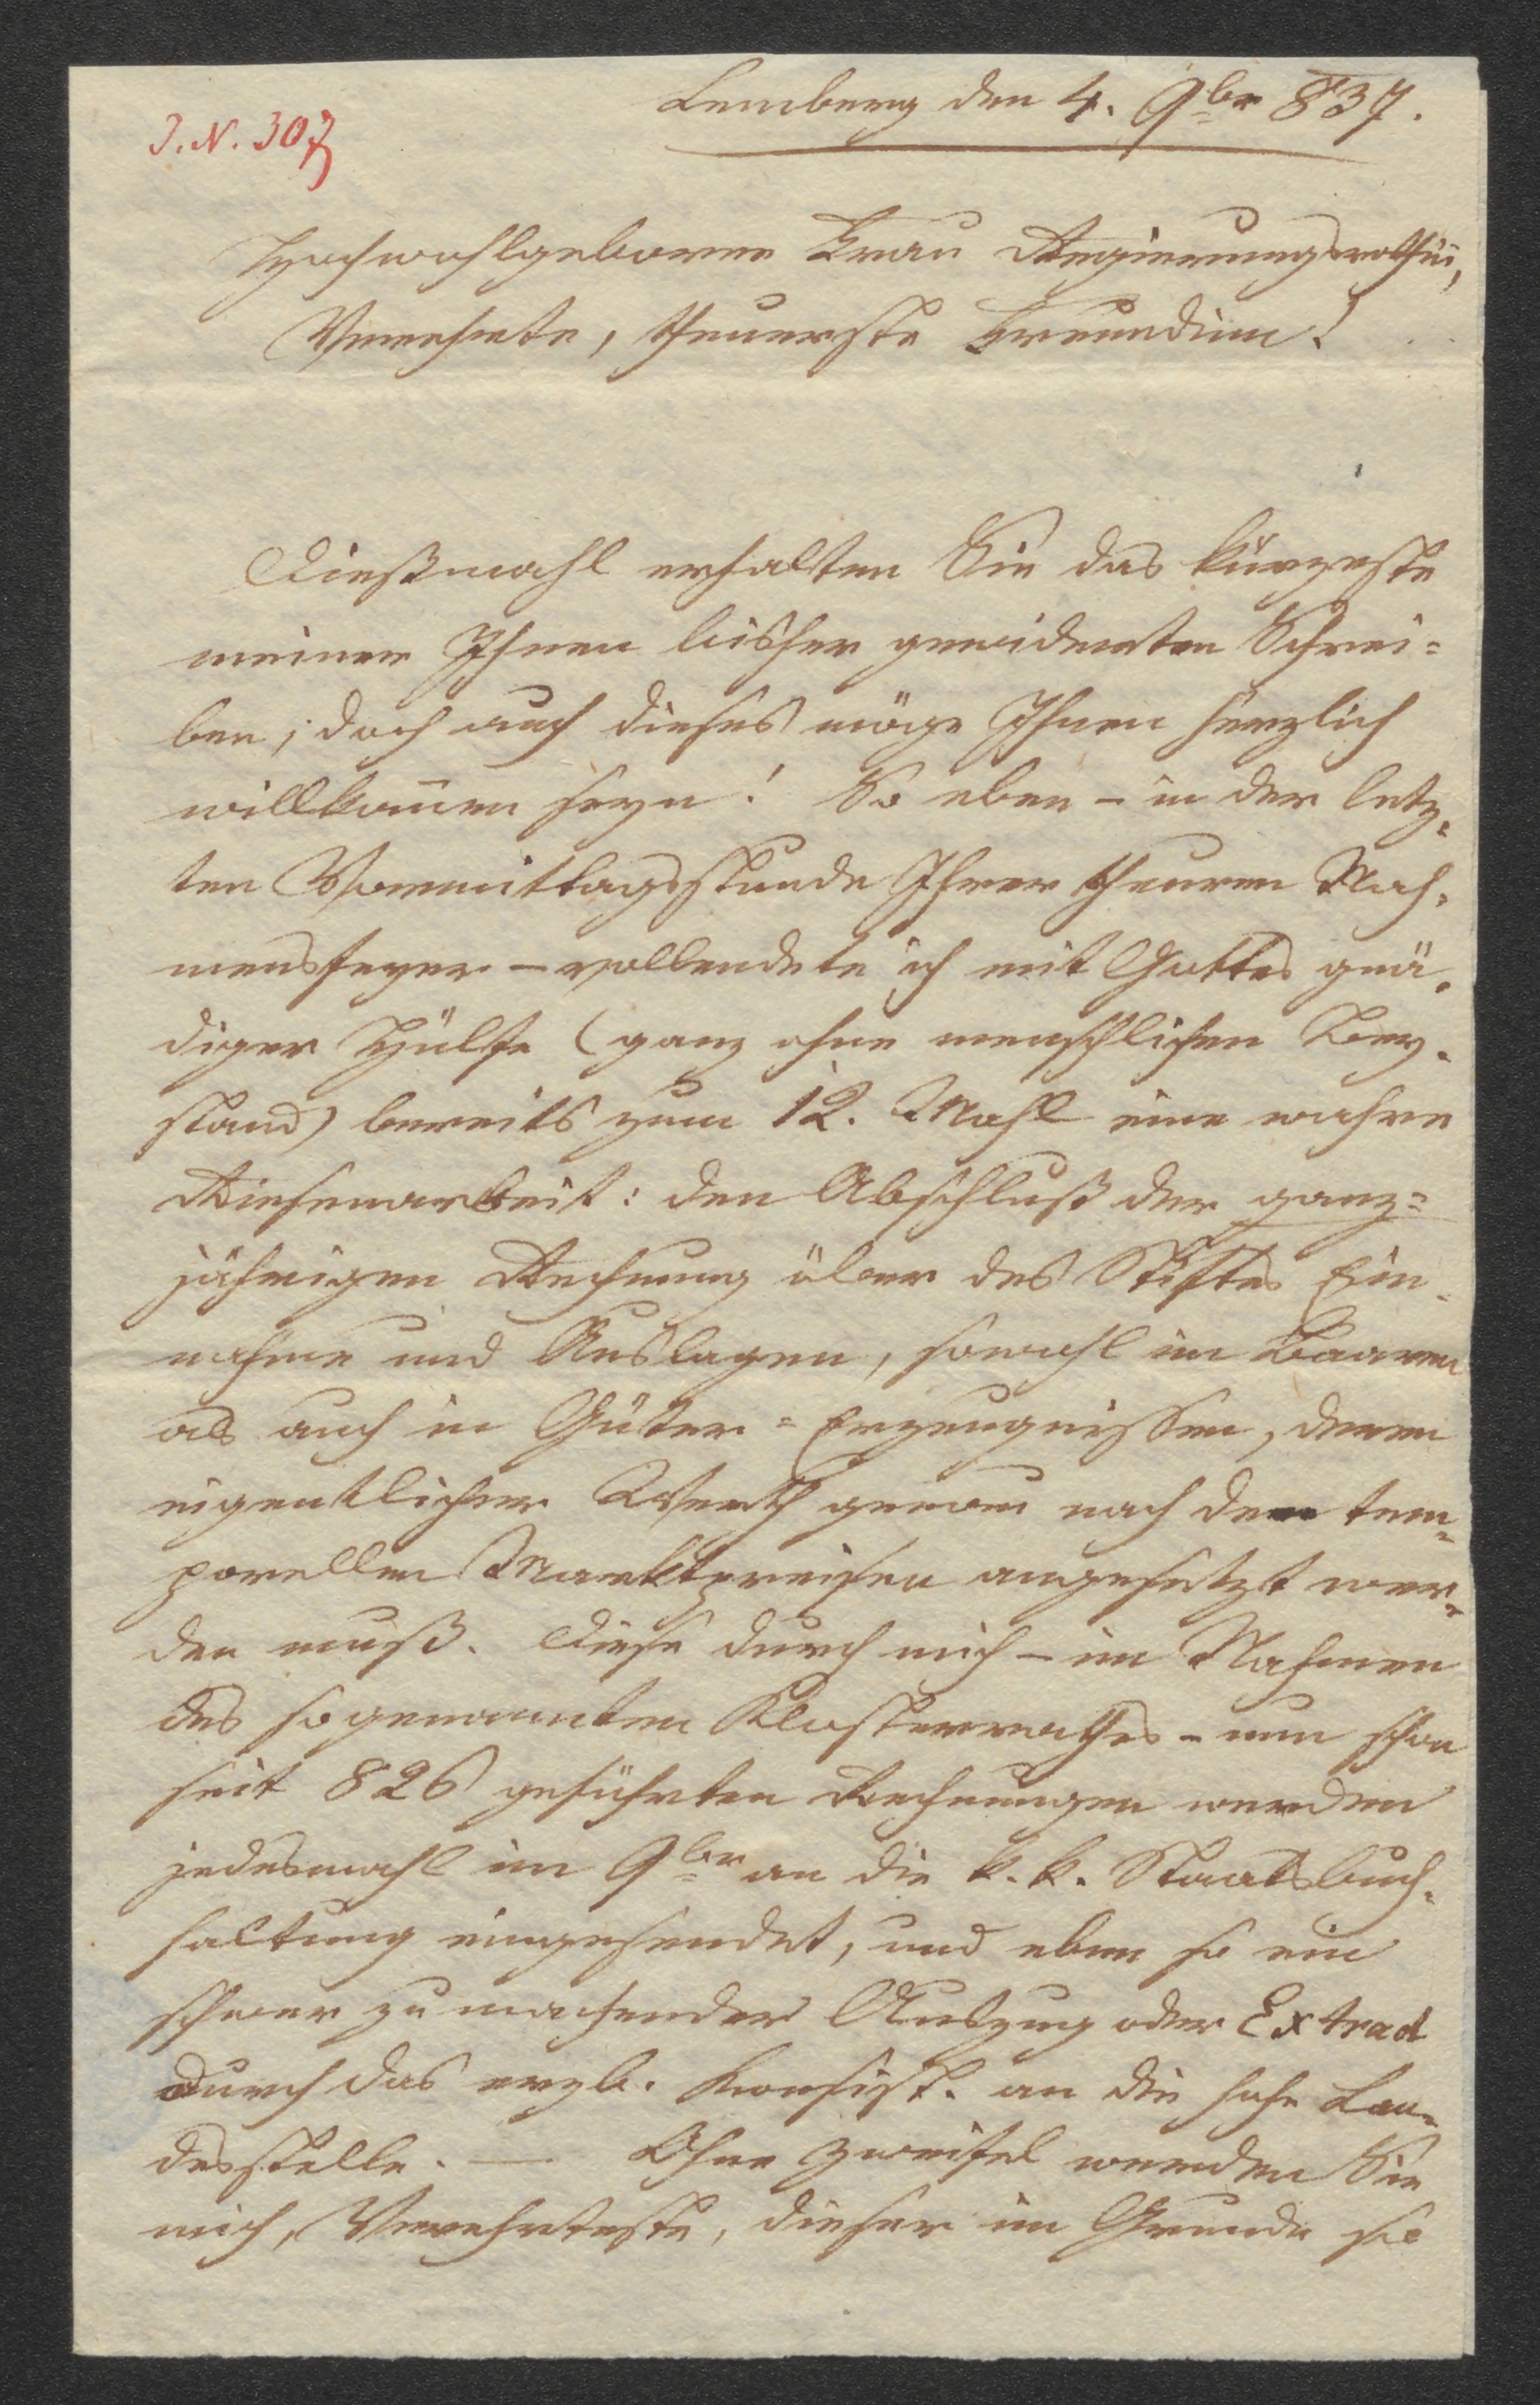 Lemberg den 4. 9br 837.
J. N. 307
Hochwohlgeborne Frau Regierungsräthin,
Verehrte, theuerste Freundinn!
Dießmahl erhalten Sie das kürzeste
meiner Ihnen bisher gewidmeten Schrei=
ben; doch auch dieses möge Ihnen herzlich
willkom̄en seyn! So eben – in der letz=
ten Vormittagsstunde Ihrer theuren Nah=
mensfeyer – vollendete ich mit Gottes gnä=
diger Hülfe (ganz ohne menschlichen Bey=
stand) bereits zum 12. Mahl eine wahre
Riesenarbeit: den Abschluß der ganz=
jährigen Rechnung über des Stiftes Ein=
nahme und Auslagen, sowohl im Baaren
als auch in Güter=Erzeugnissen, deren
eigentlicher Werth genau nach den tem=
porellen Marktpreisen angesetzt wer=
den muß. Diese durch mich – im Nahmen
des sogenannten Klosterrathes – nun schon
seit 826 geführten Rechnungen werden
jedesmahl im 9br an die k. k. Staatsbuch=
haltung eingesendet, und eben so ein
schwer zu machender Auszug oder Extract
durch das erzb. Konsist. an die hohe Lan=
desstelle. — Ohne Zweifel werden Sie
mich, Verehrteste, dieser im Grunde so